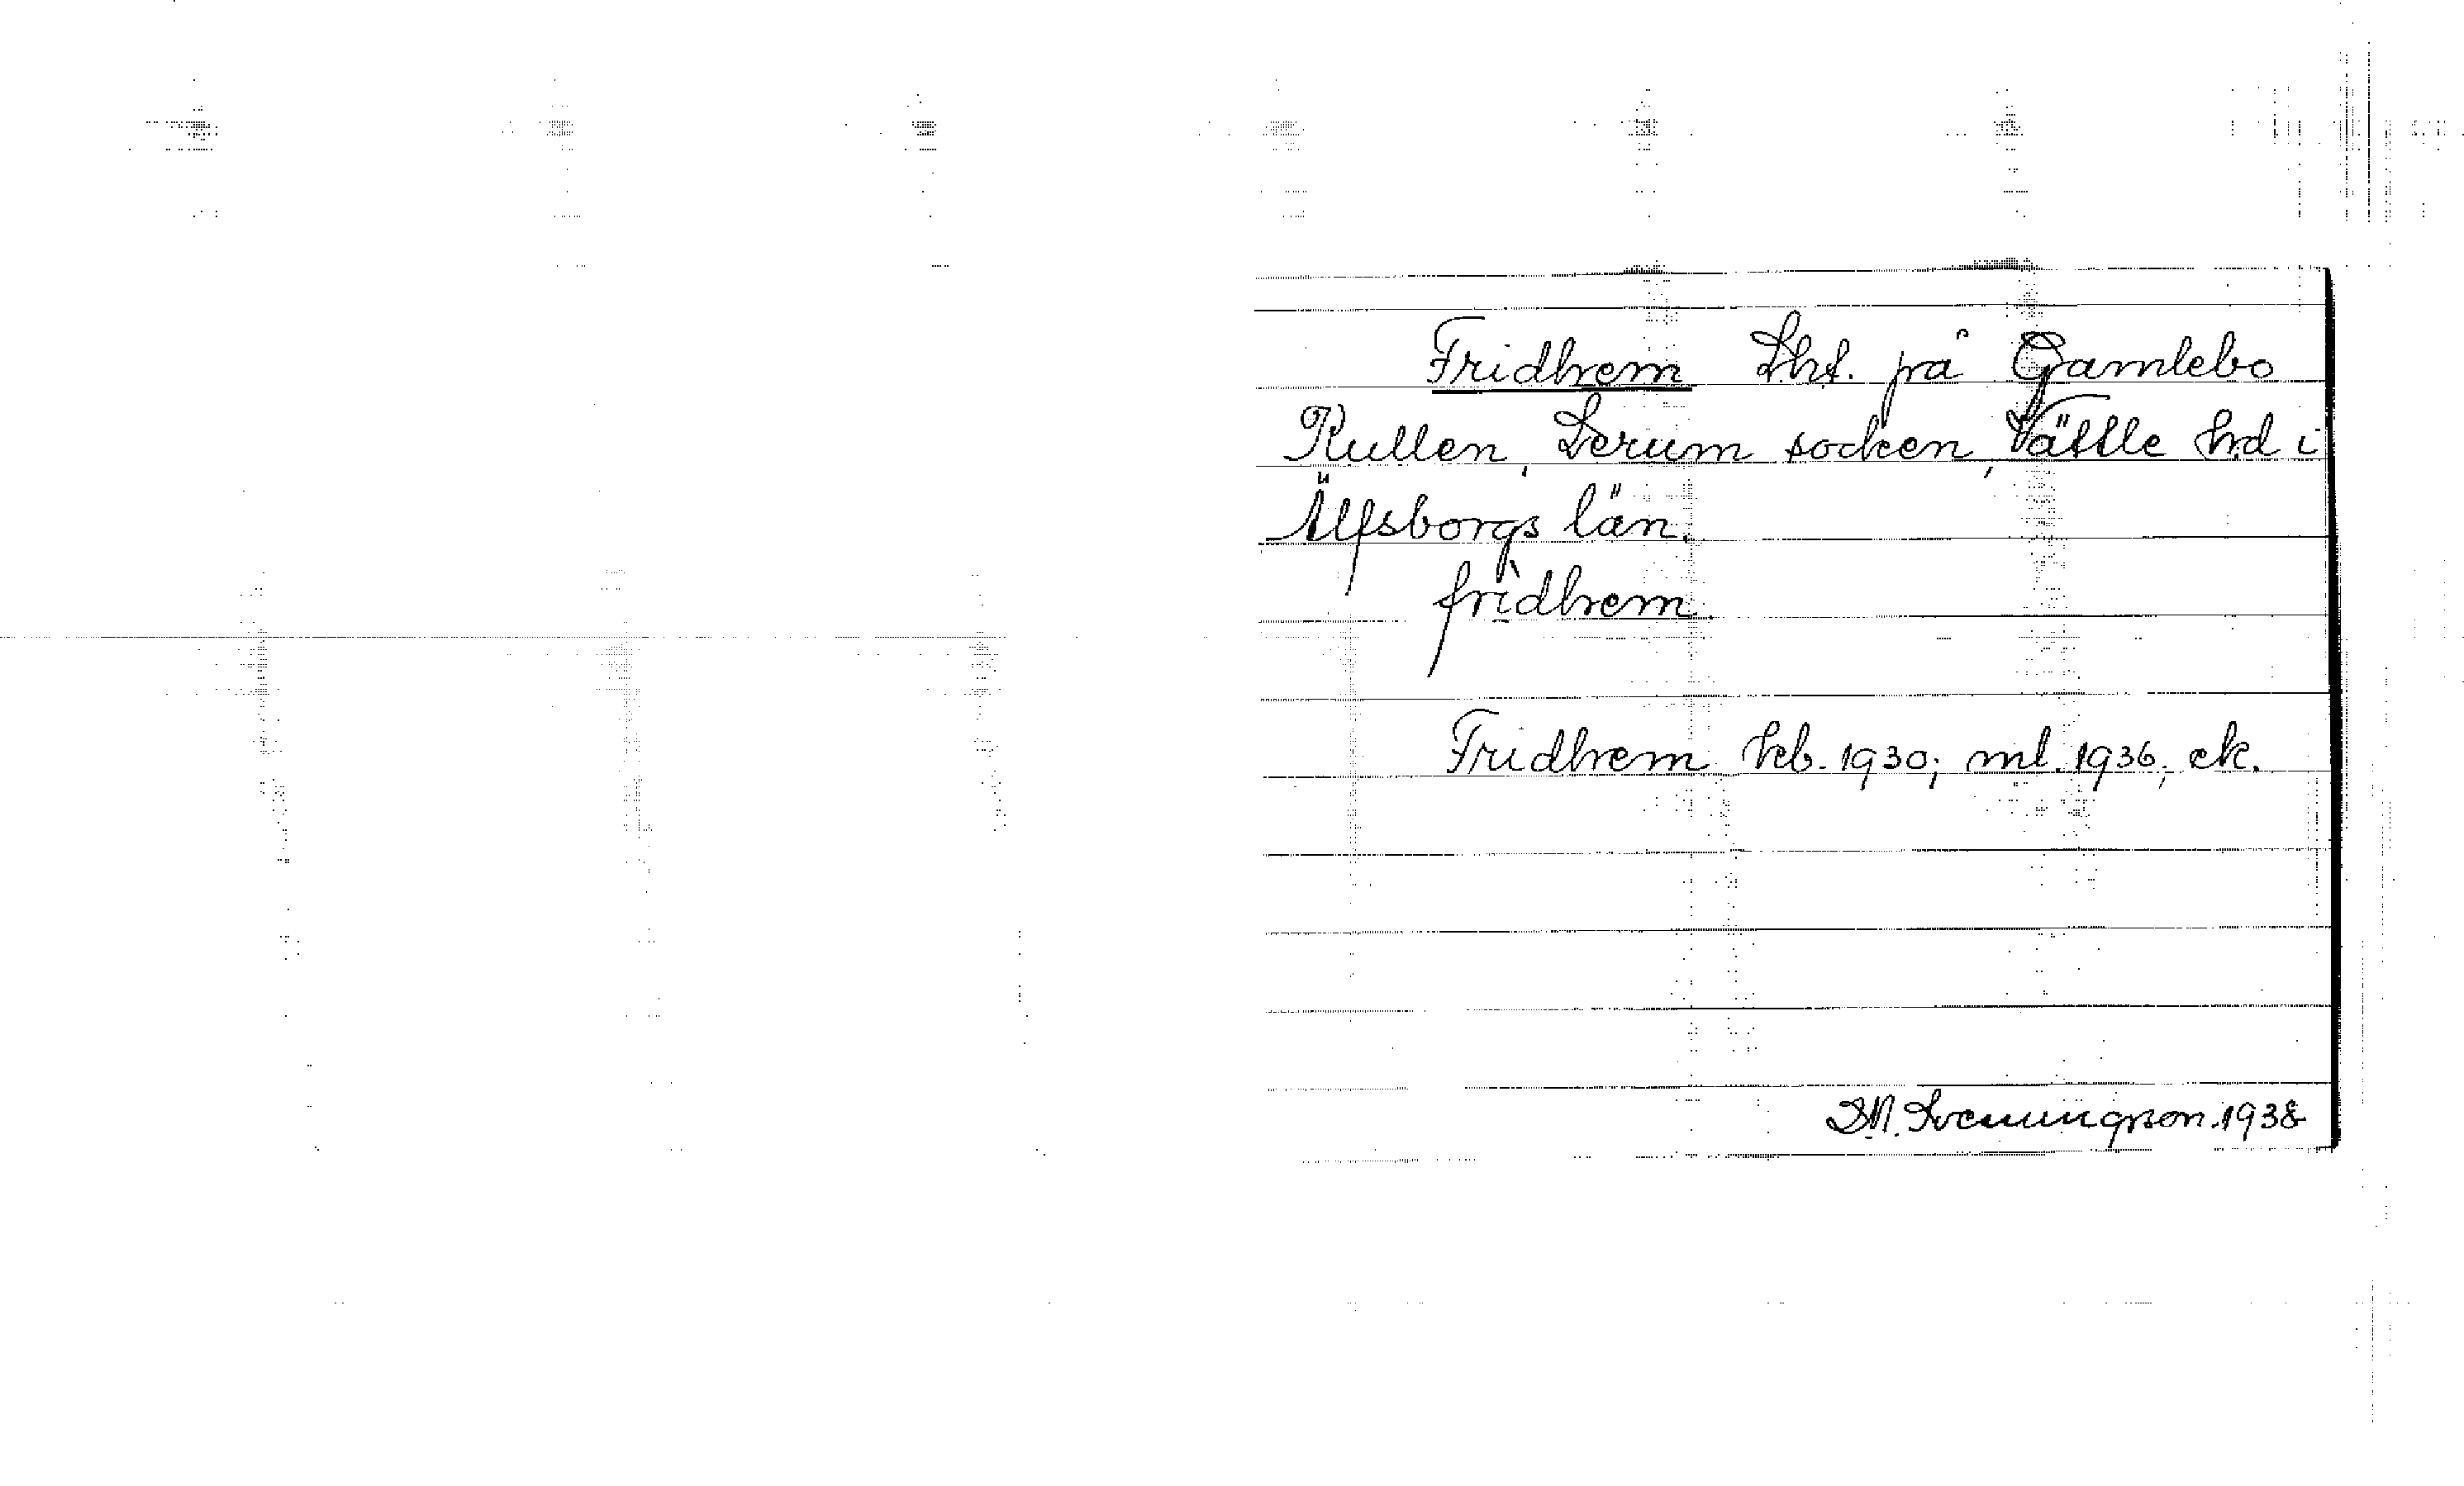 Fridhem Lht. på Gamlebo
Kullen, Lerum socken, Vättle hd i
Älfsborgs län.
frìdhem.
Fridhem hb. 1930; ml. 1936, ek.
D.N. Svenungson. 1938